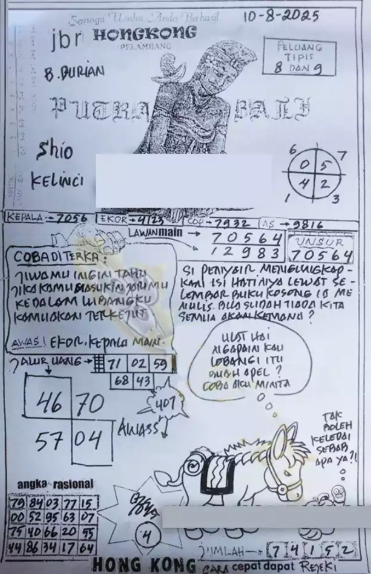 Semoga Usaha Anda Berhasil
10-8-2025
jbr HONGKONG
PELAMBANG
PELUANG
TIPIS
8 DAN 9
B. DURIAN
PUTRA BALI
Shio
KELINCI
6 7
0 5
4 2
1 3
KEPALA → 7056 EKOR → 4123 COP → 7932 AS → 9816
LAWAN main 7 0 5 6 4
1 2 9 8 3
UNSUR
70564
COBA DITERKA:
JIWAMU INGIN TAHU
JIKA KAMU MASUKIN JARIMU
KEDALAM LUBANGKU
KAMU AKAN TERKEJUT
AWAS! EKOR. KEPALA MAIN.
SI PENYAIR MENGUNGKAP-
KAN ISI HATINYA LEWAT SE-
LEMBAR BUKU KOSONG IA ME
NULIS. BILA SUDAH TIADA KITA
SEMUA AKAN KEMANA?
JALUR UANG →
71 02 59
68 43
46 70
57 04
407
AWASS
ULAT HAI
NGAPAIN KAU
LOBANGI ITU
BUAH APEL?
COBA AKU MINTA
TAK
BOLEH
KELEDAI
SEBAB
APA YA?!
angka rasional
79 84 03 77 15
00 52 95 63 07
75 40 66 20 55
44 86 34 17 64
4
JUMLAH → 7 4 1 5 2
HONG KONG CARA cepat dapat REJEKI